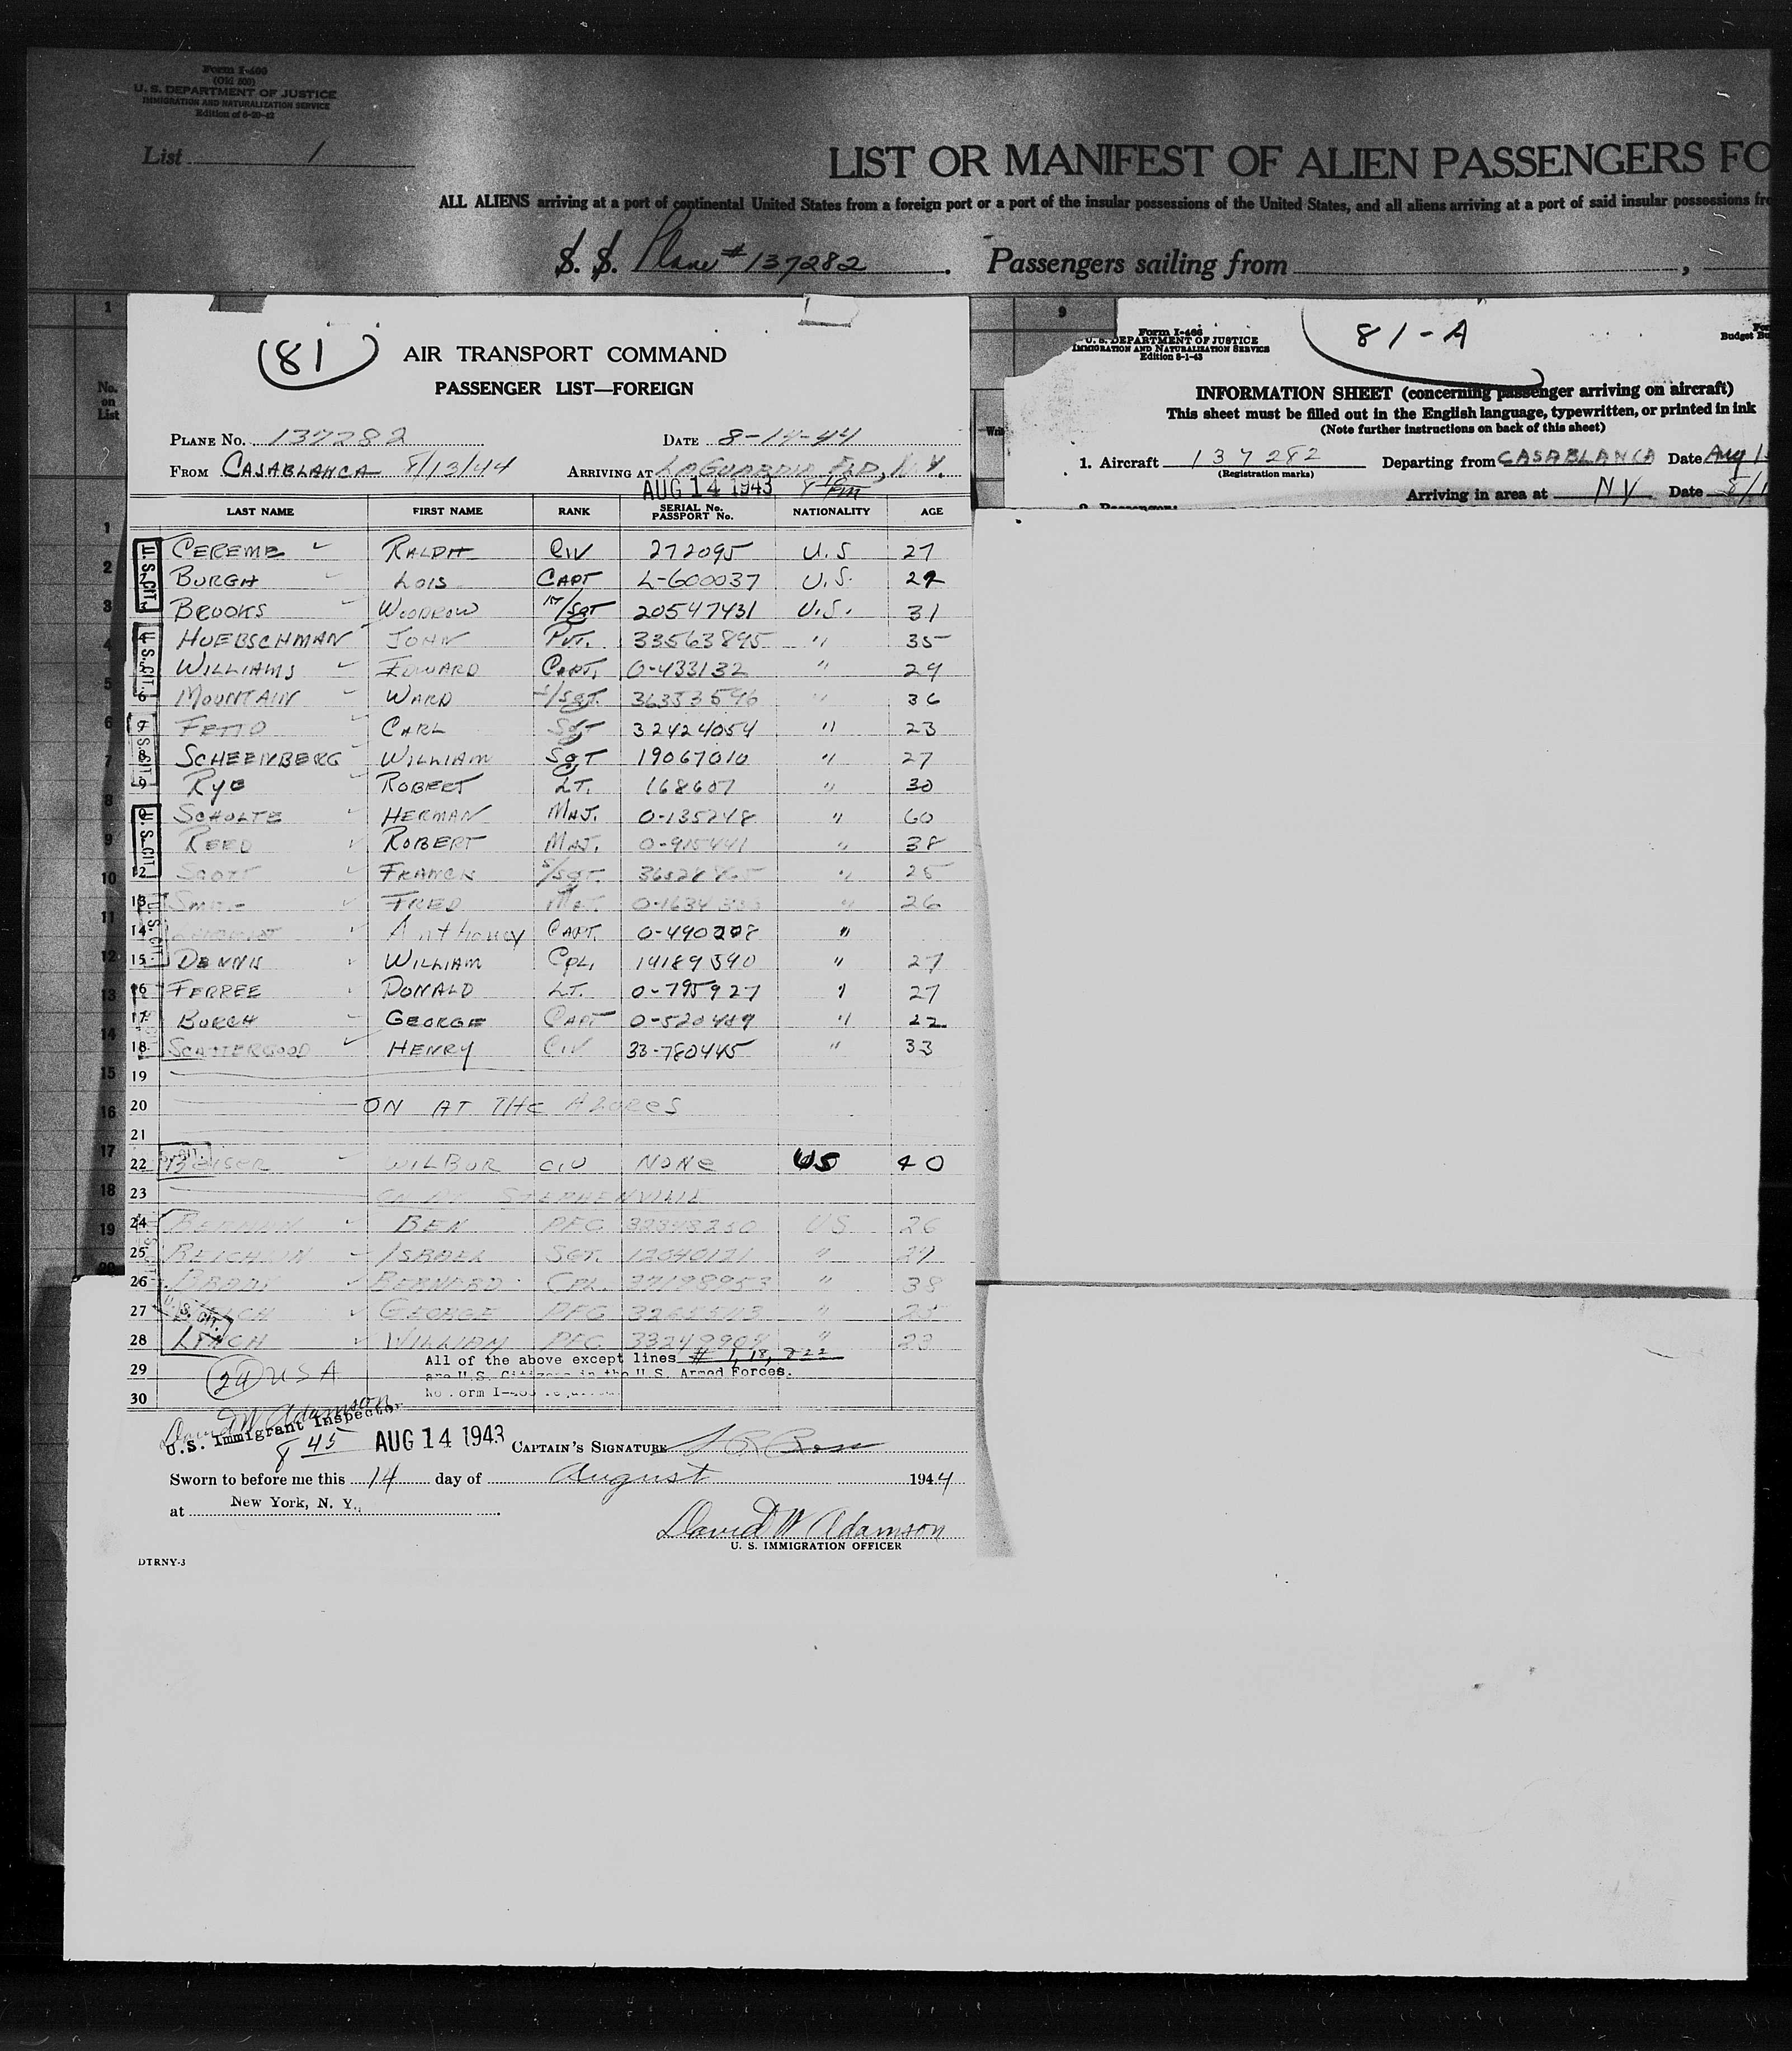 Form I-400
(Old 500)
U. S. DEPARTMENT OF JUSTICE
IMMIGRATION AND NATURALIZATION SERVICE
Edition of 6-20-42
List 1
LIST OR MANIFEST OF ALIEN PASSENGERS FO
ALL ALIENS arriving at a port of continental United States from a foreign port or a port of the insular possessions of the United States, and all aliens arriving at a port of said insular possessions fr
S. S. Plane # 137282. Passengers sailing from
No. on List
(81)
AIR TRANSPORT COMMAND
PASSENGER LIST—FOREIGN
PLANE No. 137282 DATE 8-14-44
FROM CASABLANCA 8/13/44 ARRIVING AT LAGUARDIA FLD, N.Y.
AUG 14 1943
LAST NAME FIRST NAME RANK SERIAL No. PASSPORT No. NATIONALITY AGE
CEREME RALPH CIV 272095 U.S 27
BURGH LOIS CAPT L-600037 U.S.
BROOKS WOODROW M/SGT 20547431 U.S. 31
HUEBSCHMAN JOHN PVT. 33563895 " 35
WILLIAMS EDWARD CAPT. 0-433132 " 29
MOUNTAIN WARD SGT. 36353596 " 36
CARL SGT 32424054 " 23
SCHEENBERG WILLIAM SGT 19067010 " 27
RYE ROBERT LT. 168607 " 30
SCHULTE HERMAN MAJ. 0-135248 " 60
REED ROBERT MAJ. 0-915441 " 38
12 SCOTT FRANCIS S/SGT. " 25
13 FRED " 26
14 Anthoney CAPT. 0-490208 "
15 DENNIS WILLIAM CPL. 14189590 " 27
16 FERREE DONALD LT. 0-795927 " 27
17 BURCH GEORGE CAPT 0-520409 " 22
18 SCATTERGOOD HENRY CIV 33-780445 " 33
19
20 ON AT THE AZORES
21
22 WILBUR CIV NONE US 40
23 ON AT STEPHENVILLE
24 BERMAN BEN PFC 32348230 US 26
25 ISRAEL SGT. 12040121 " 27
26 BERNARD CPL. 37198953 " 38
27 GEORGE PFC "
28 LYNCH WILLIAM PFC 33249904 " 23
29 All of the above except lines # 1, 18, & 22
are U.S. Citizens in the U.S. Armed Forces.
30
(24) USA
David W Adamson
U.S. Immigrant Inspector
8 45 AUG 14 1943 CAPTAIN'S SIGNATURE
Sworn to before me this 14 day of August 1944
at New York, N. Y.
David W Adamson
U. S. IMMIGRATION OFFICER
DTRNY-3
81-A
Form I-466
U. S. DEPARTMENT OF JUSTICE
IMMIGRATION AND NATURALIZATION SERVICE
Edition 8-1-43
INFORMATION SHEET (concerning passenger arriving on aircraft)
This sheet must be filled out in the English language, typewritten, or printed in ink
(Note further instructions on back of this sheet)
1. Aircraft 137282 Departing from CASABLANCA Date Aug 1
(Registration marks)
Arriving in area at NY Date 8/1